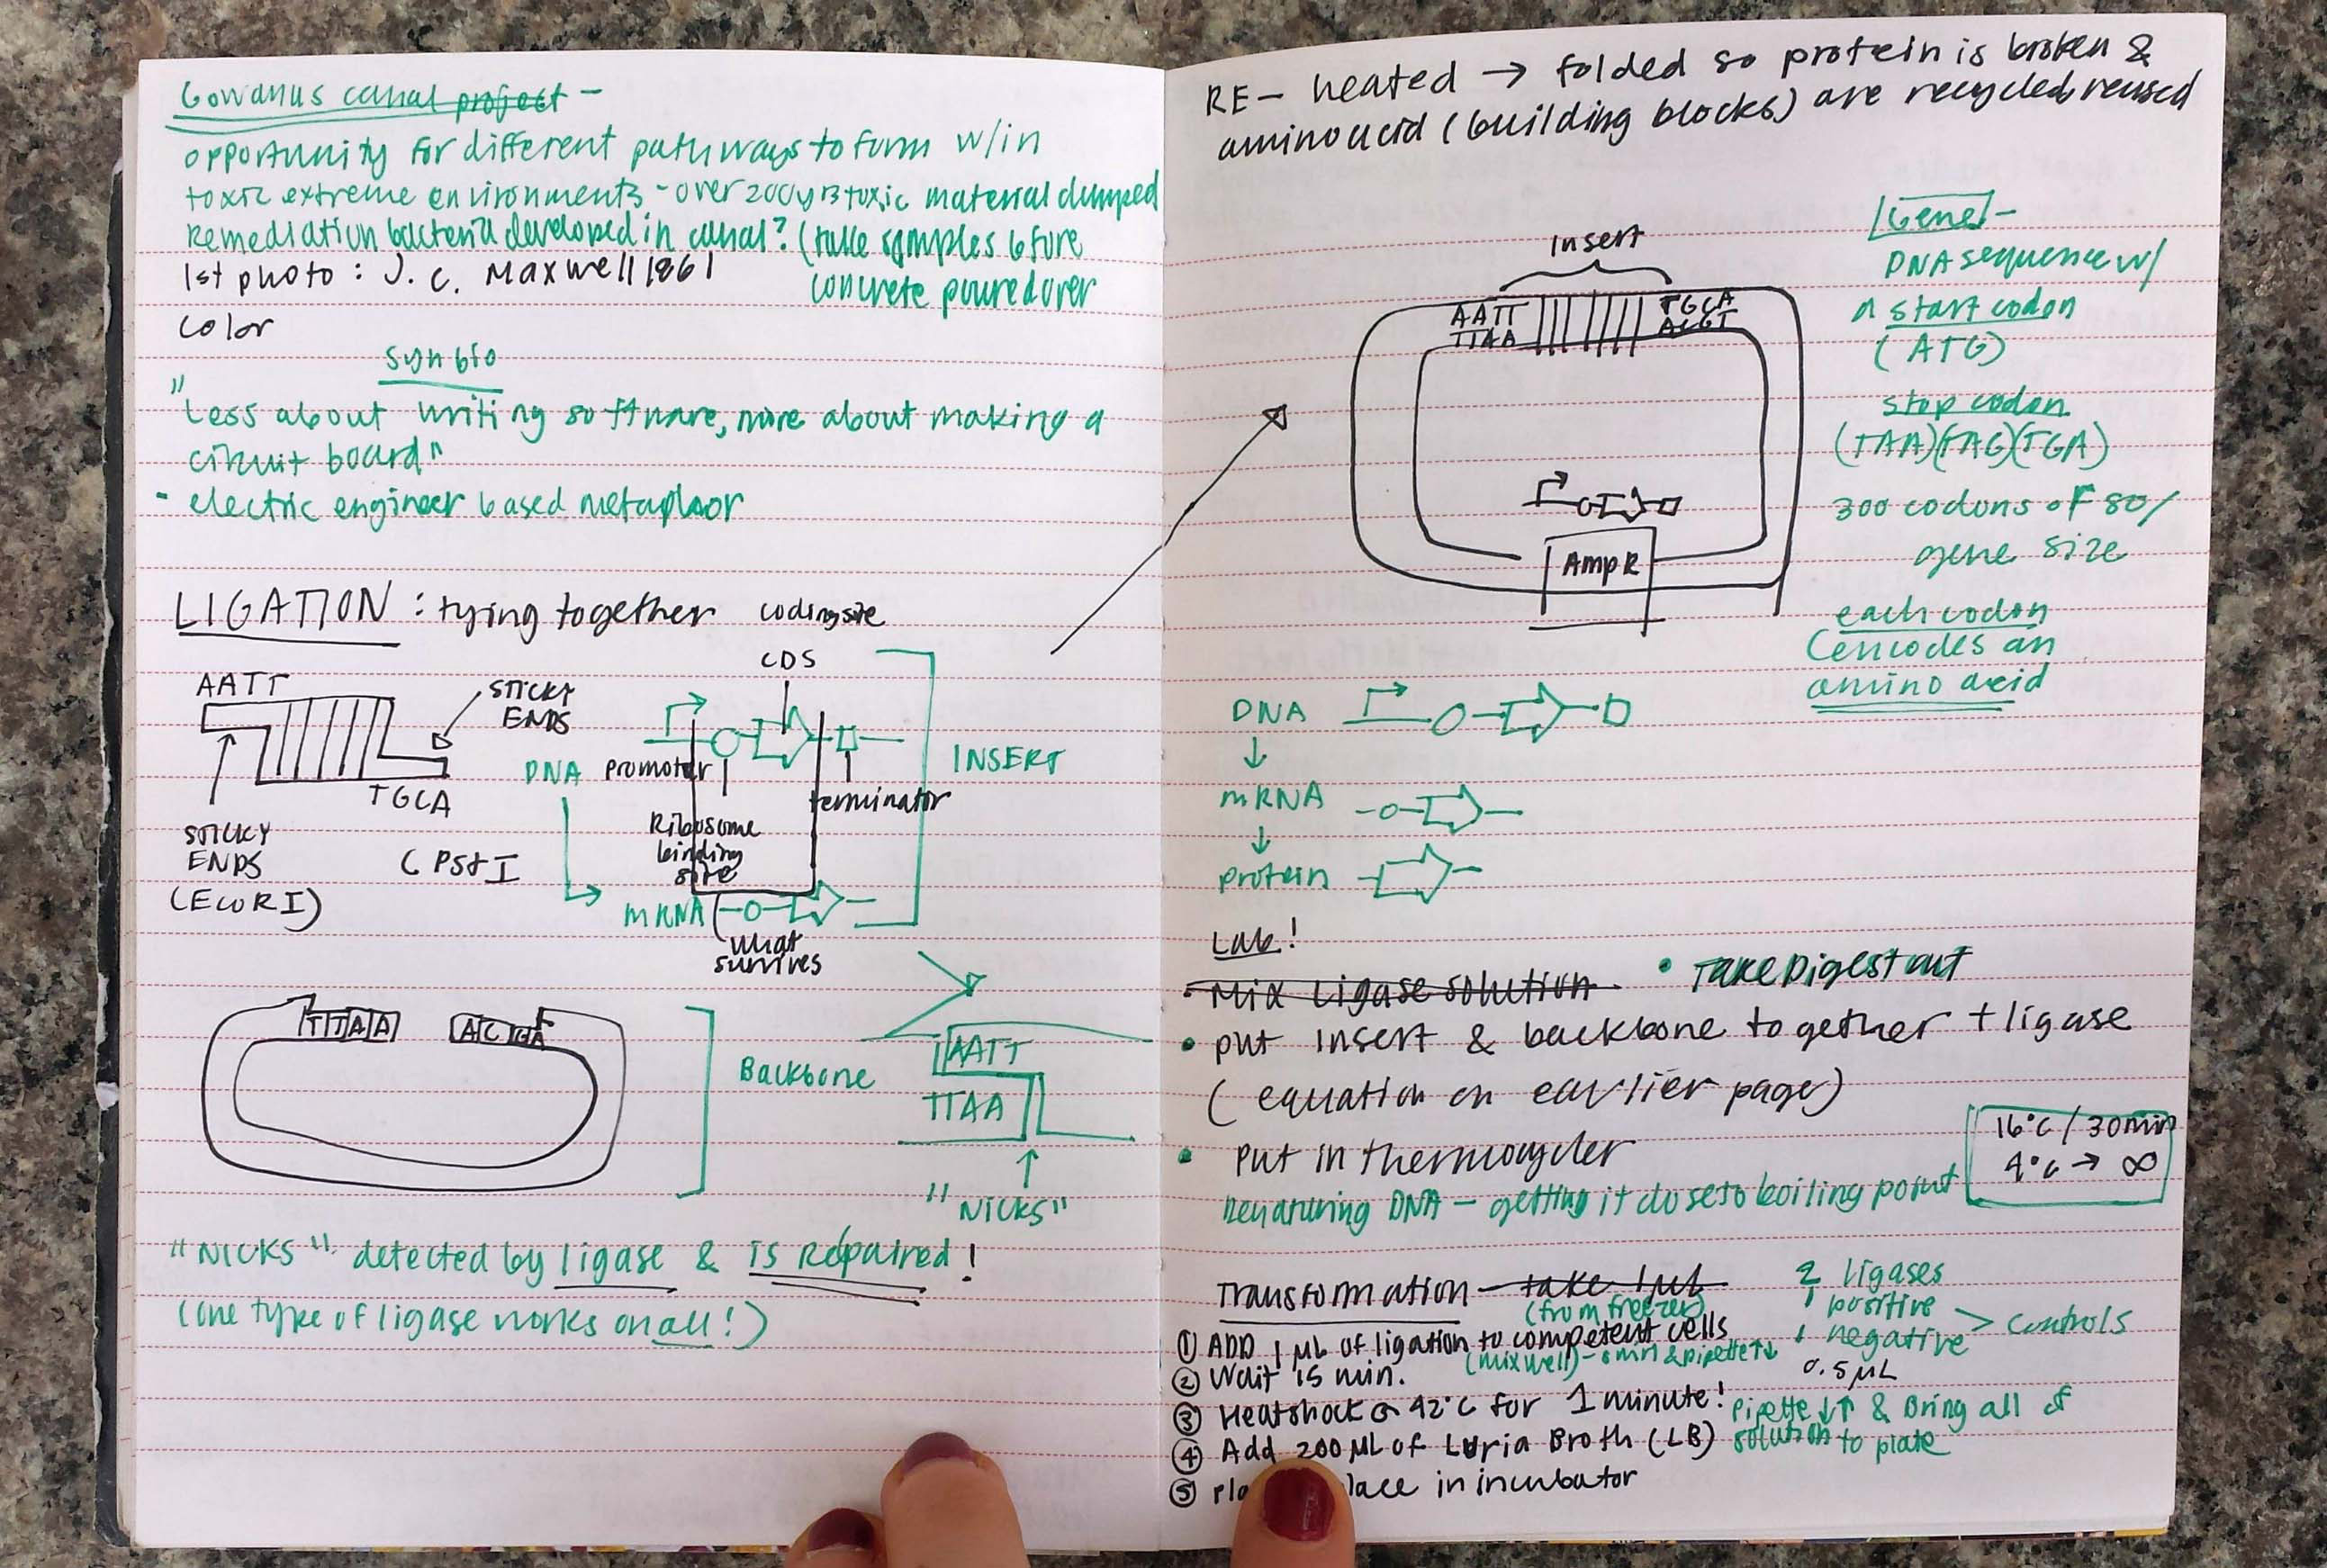 Gowanus canal project -
opportunity for different pathways to form w/in
toxic extreme environments - over 200yrs toxic material dumped
Remediation bacteria developed in canal? (take samples before
concrete poured over
1st photo : J. C. Maxwell 1861
color
syn bio
"Less about writing software, more about making a
circuit board"
- electric engineer based metaphor
LIGATION : tying together
coding site
CDS
AATT
STICKY
ENDS
TGCA
STICKY
ENDS
(ECORI)
(PSTI
DNA
promoter
Ribosome
binding
site
terminator
INSERT
mRNA
(what
survives
TTAA
ACG
Backbone
AATT
TTAA
"NICKS"
"NICKS" detected by ligase & is Repaired!
(one type of ligase works on all!)
RE - heated → folded so protein is broken &
amino acid (building blocks) are recycled, reused
Insert
AATT
TTAA
TGCA
ACGT
AmpR
Gene -
DNA sequence w/
a start codon
(ATG)
stop codon
(TAA)(TAG)(TGA)
300 codons of 80/
gene size
each codon
encodes an
amino acid
DNA
↓
mRNA
↓
protein
Lab!
• Mix Ligase solution
• TAKE Digest out
• put Insert & backbone together + ligase
(equation on earlier page)
• Put in thermocycler
16°C / 30min
4°C → ∞
Denaturing DNA - getting it close to boiling point
Transformation - take 1µL
(from freezer)
① ADD 1 µL of ligation to competent cells
(mix well) - & pipette ↑↓
② Wait 15 min.
③ Heatshock @ 42°C for 1 minute!
④ Add 200 µL of Luria Broth (LB)
⑤ place in incubator
2 ligases
1 positive
1 negative > controls
0.5 µL
Pipette ↓↑ & Bring all of
solution to plate